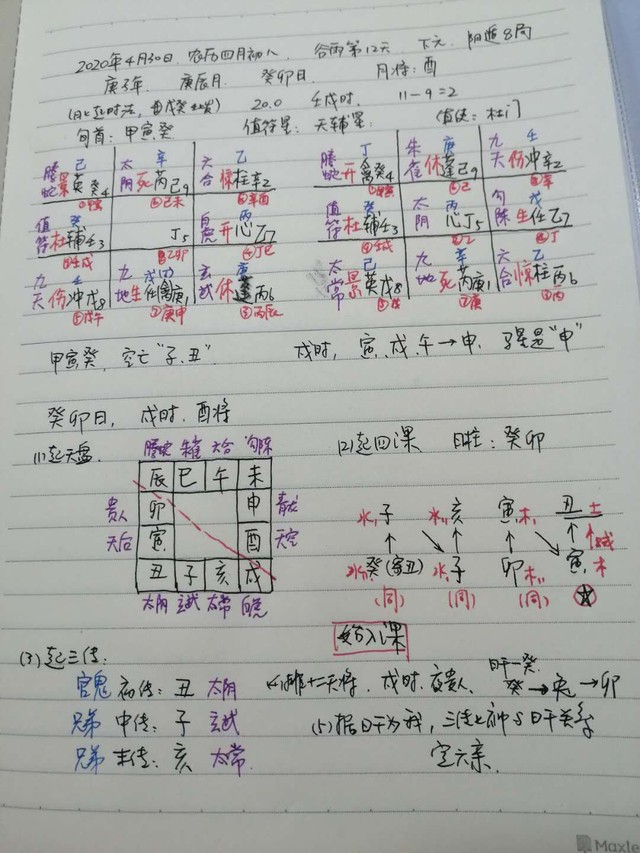 2020年4月30日 农历四月初八 谷雨第12天 下元 阳遁8局
庚子年 庚辰月 癸卯日 月将:酉
(日上起时法, 20:0 壬戌时 11-9=2
旬首:甲寅癸 值符星:天辅星 值使:杜门
腾 己 太 辛 六 乙
蛇 景 英 癸4 阴 死 芮 己9 合 惊 柱 辛2
值 癸 白 丙
符 杜 辅 壬3 丁5 虎 开 心 乙7
九 壬 九 戊(丁) 玄 庚
天 伤 冲 戊8 地 生 任禽 庚1 武 休 蓬 丙6
腾 丁 朱 庚 九 壬
蛇 开 禽 癸4 雀 休 蓬 己9 天 伤 冲 辛2
值 癸 太 丙 勾 戊
符 杜 辅 壬3 阴 心 丁5 陈 生 任 乙7
太 己 九 辛 六 乙
常 景 英 戊8 地 死 芮 庚1 合 惊 柱 丙6
甲寅癸,空亡"子、丑" 戌时,寅、戌、午→申,马星是"申"
癸卯日,戌时,酉将
(1)起天盘 腾蛇 朱雀 六合 勾陈 (2)起四课 日柱:癸卯
辰 巳 午 未
贵人 卯 申 青龙
天后 寅 酉 天空
丑 子 亥 戌
太阴 玄武 太常 白虎
水 子 水 亥 寅 木 丑 土
贼
水 癸(寄丑) 水 子 卯 木 寅 木
(同) (同) (同)
始入课
(3)起三传:
官鬼 初传:丑 太阴 (4)排十二天将,戌时,夜贵人, 日干—癸
癸→兔→卯
兄弟 中传:子 玄武 (5)据日干为我,三传之神与日干关系
兄弟 末传:亥 太常 定六亲.
Maxle